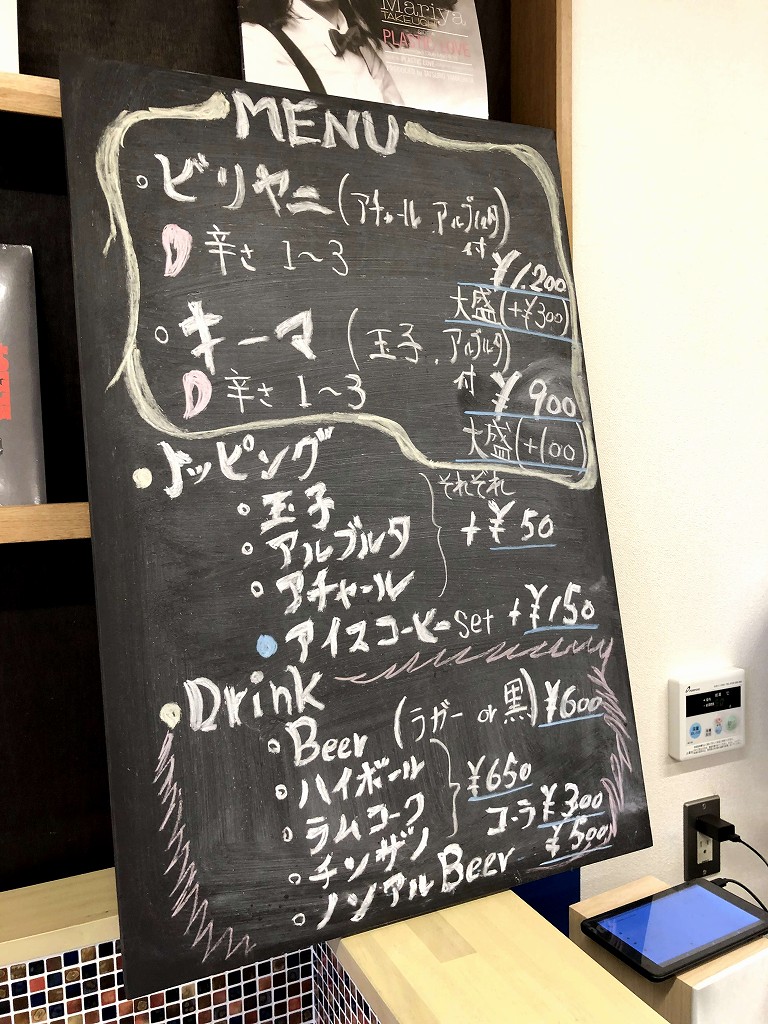 Mariya
TAKEUCHI
PLASTIC LOVE
MENU
ビリヤニ(アチャール、アルブルタ)付
辛さ 1～3
¥1,200
大盛(+¥300)
キーマ (玉子、アルブルタ)付
辛さ 1～3
¥900
大盛(+100)
トッピング
それぞれ
玉子
アルブルタ
+¥50
アチャール
アイスコーヒーSet +¥150
Drink
Beer (ラガー or 黒) ¥600
ハイボール
ラムコーク
¥650
チンザノ
コーラ¥300
ノンアルBeer ¥500